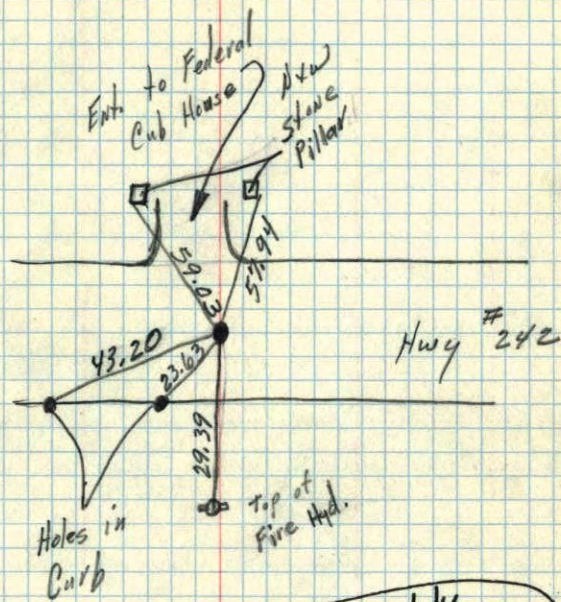 Ent. to Federal
Cub House
N&W
Stone
Pillar
59.03
57.94
43.20
23.63
Hwy #242
29.39
Top of
Fire Hyd.
Holes in
Curb